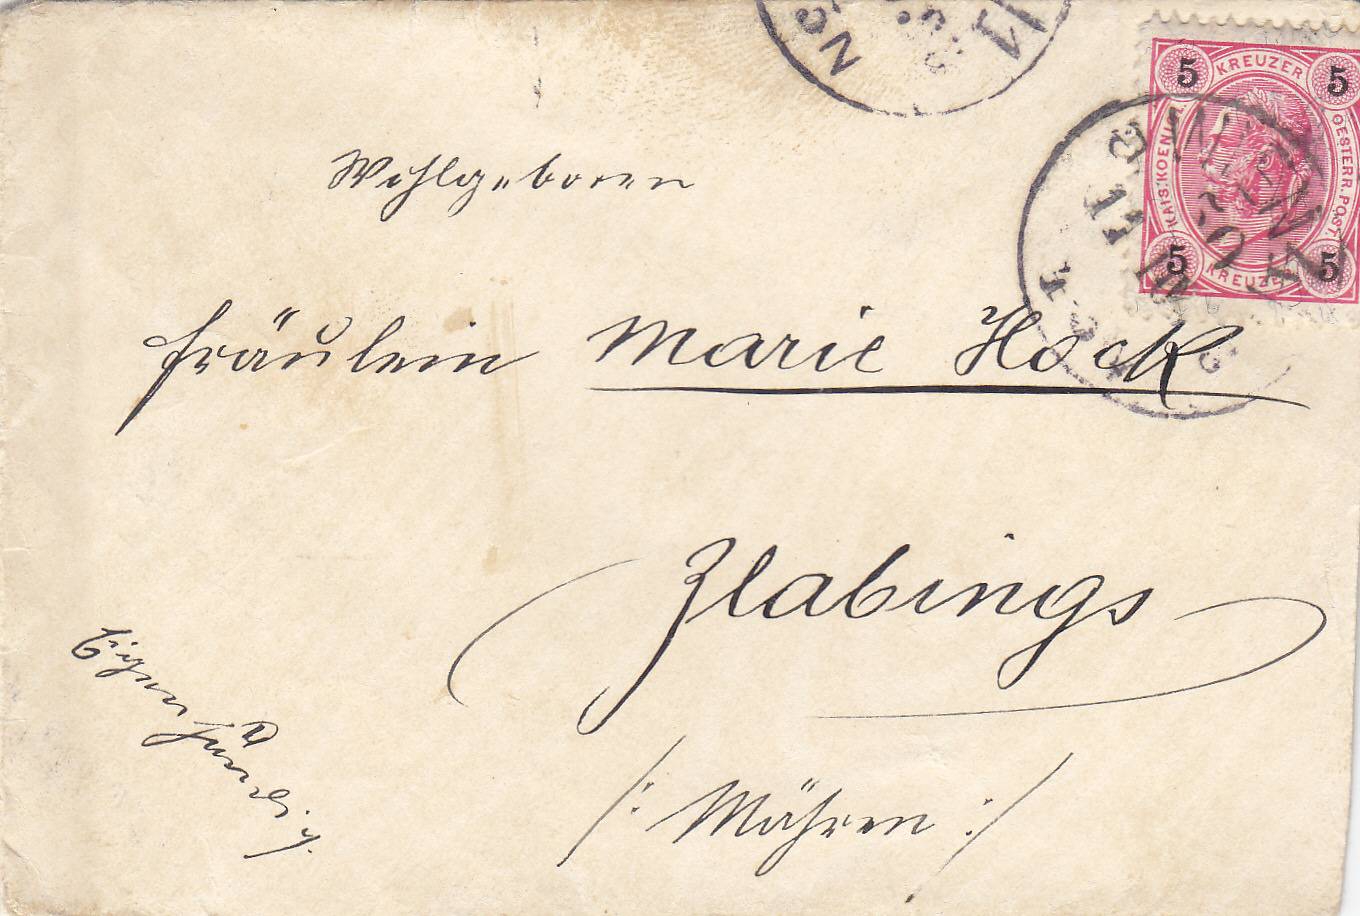 5 KREUZER 5
KAIS. KOENIGL. OESTERR. POST.
5 KREUZER 5
WIEN
Wohlgeboren
Fräulein Marie Hock
Zlabings
/: Mähren :/
Eigenhändig.